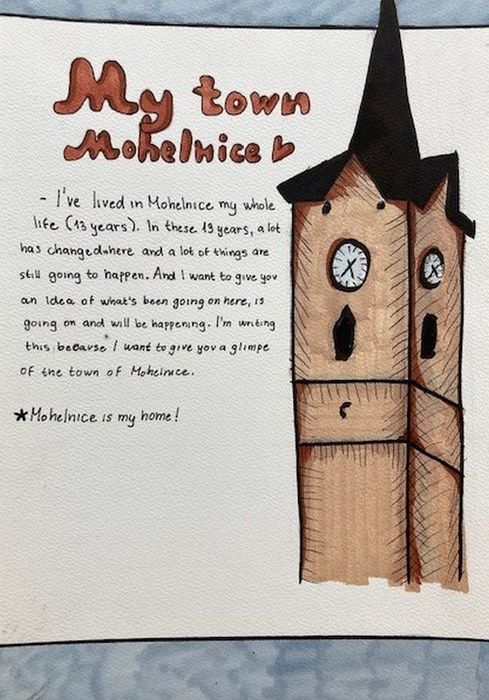 My town
Mohelnice
- I've lived in Mohelnice my whole
life (13 years). In these 13 years, a lot
has changed here and a lot of things are
still going to happen. And I want to give you
an idea of what's been going on here, is
going on and will be happening. I'm writing
this because I want to give you a glimpe
of the town of Mohelnice.
★Mohelnice is my home!